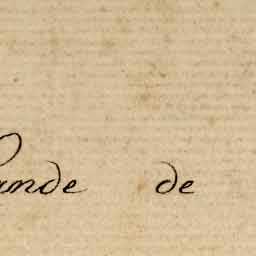 ande de